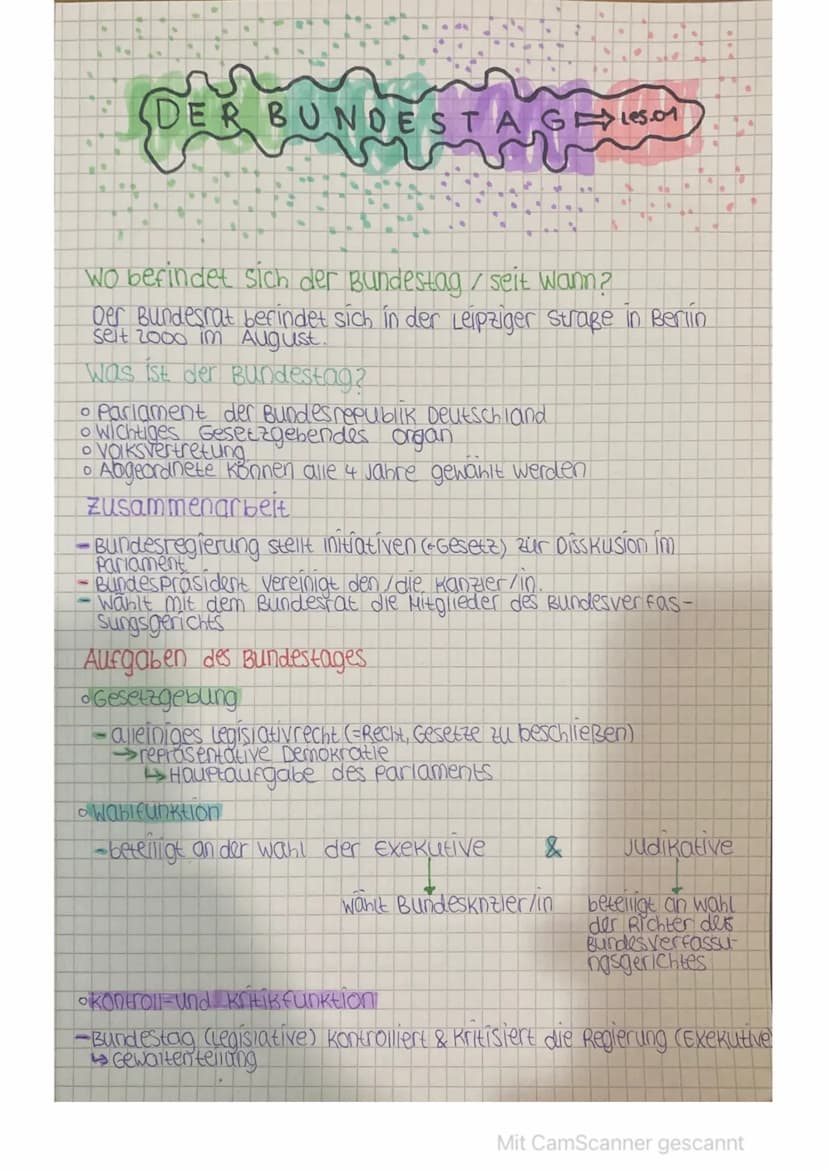 DER BUNDESTAG ⇒ Les.01
Wo befindet sich der Bundestag / seit wann?
Der Bundesrat befindet sich in der Leipziger Straße in Berlin
seit 2000 im August.
Was ist der Bundestag?
o Parlament der Bundesrepublik Deutschland
o Wichtiges Gesetzgebendes Organ
o Volksvertretung
o Abgeordnete können alle 4 Jahre gewählt werden
Zusammenarbeit
- Bundesregierung stellt Initiativen (←Gesetz) zur Disskusion im
Parlament
- Bundespräsident vereinigt den/die Kanzler/in.
- Wählt mit dem Bundesrat die Mitglieder des Bundesverfas-
sungsgerichts
Aufgaben des Bundestages
o Gesetzgebung
- alleiniges Legislativrecht (=Recht, Gesetze zu beschließen)
→ repräsentative Demokratie
↳ Hauptaufgabe des Parlaments
o Wahlfunktion
- beteiligt an der Wahl der Exekutive & Judikative
wählt Bundesknzler/in
beteiligt an Wahl
der Richter des
Bundesverfassu-
ngsgerichtes
o Kontroll- und Kritikfunktion
- Bundestag (Legislative) kontrolliert & kritisiert die Regierung (Exekutive
↳ Gewaltenteilung
Mit CamScanner gescannt